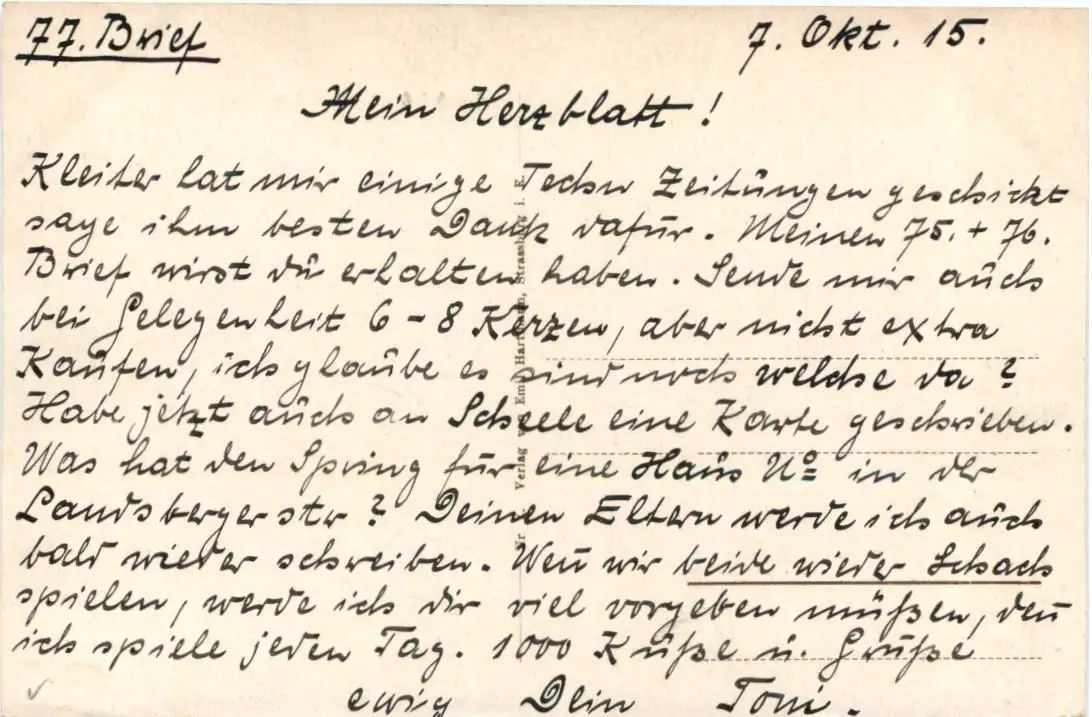 77. Brief
7. Okt. 15.
Mein Herzblatt!
Kleiter hat mir einige Techn Zeitungen geschickt
sage ihm besten Dank dafür. Meinen 75. + 76.
Brief wirst du erhalten haben. Sende mir auch
bei Gelegenheit 6 - 8 Kerzen, aber nicht extra
Kaufen, ich glaube es sind noch welche da?
Habe jetzt auch an Scheele eine Karte geschrieben.
Was hat den Spring für eine Haus No in der
Landsbergerstr? Deinen Eltern werde ich auch
bald wieder schreiben. Wen̄ wir beide wieder Schach
spielen, werde ich dir viel vorgeben müßen, den̄
ich spiele jeden Tag. 1000 Küße u. Grüße
ewig Dein Toni.
Verlag von Emil Hartmann, Strassburg i. E.